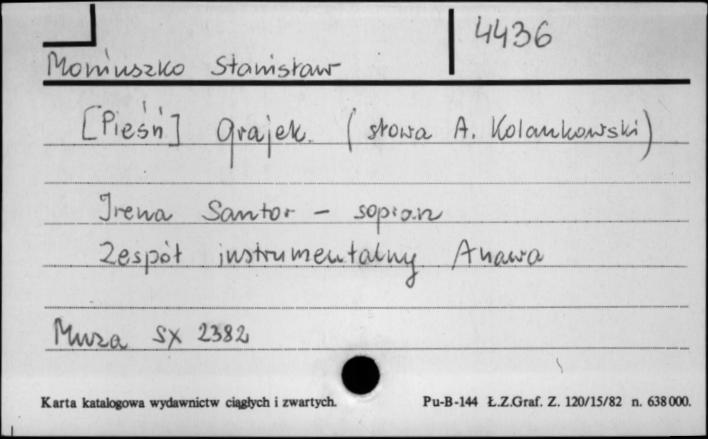 4436
Moniuszko Stanisław
[Pieśń] Grajek. (słowa A. Kolankowski)
Irena Santor - sopran
Zespół instrumentalny Anawa
Muza SX 2382
Karta katalogowa wydawnictw ciągłych i zwartych. Pu-B-144 Ł.Z.Graf. Z. 120/15/82 n. 638000.